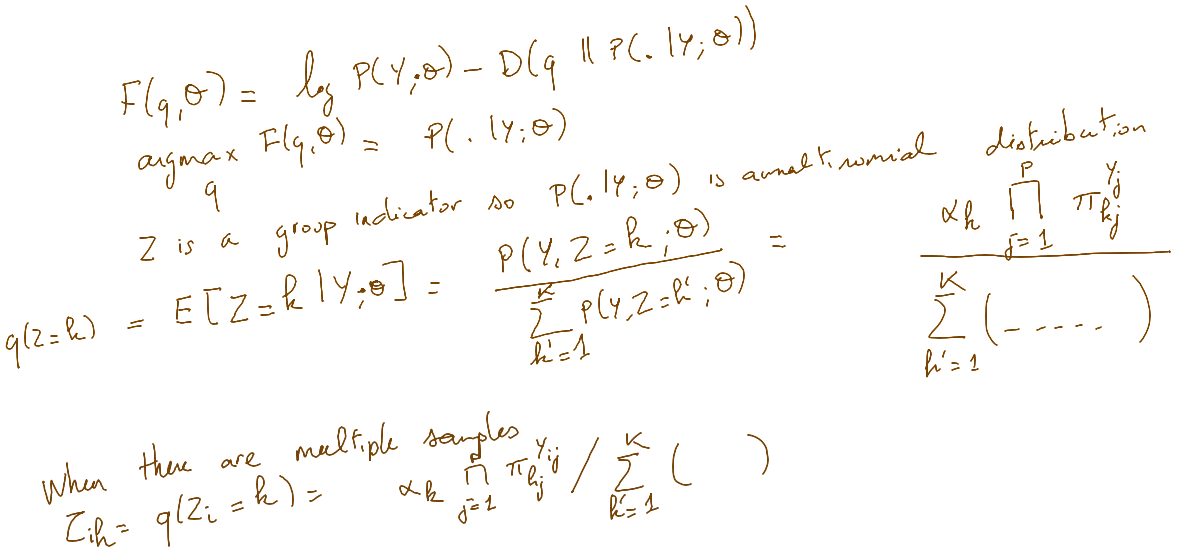 F(q,θ) = log P(Y;θ) - D(q || P(. |Y;θ))
argmax_q F(q,θ) = P(. |Y;θ)
Z is a group indicator so P(. |Y;θ) is a multinomial distribution
q(Z=k) = E[Z=k |Y;θ] = P(Y, Z=k ;θ) / ∑_{k'=1}^{K} P(Y,Z=k' ;θ) = α_k ∏_{j=1}^{P} π_{kj}^{Y_j} / ∑_{k'=1}^{K} (-----)
When there are multiple samples
τ_{ik} = q(Z_i = k) = α_k ∏_{j=1}^{d} π_{kj}^{Y_{ij}} / ∑_{k'=1}^{K} ( )